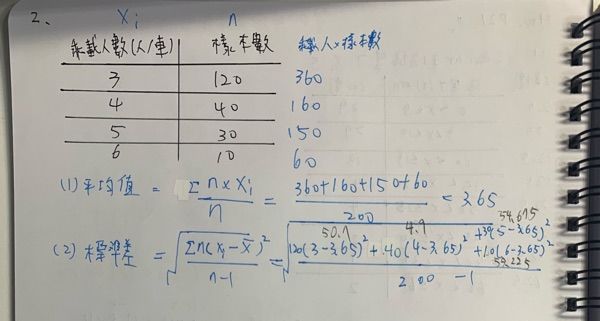 2、 Xi n
乘載人數(人/車) 樣本數 載人×樣本數
3 120 360
4 40 160
5 30 150
6 10 60
(1) 平均值 = Σn×Xi / n = 360+160+150+60 / 200 = 3.65
50.7 4.9 54.675
(2) 標準差 = √(Σn(Xi-X̄)² / n-1) = √(120(3-3.65)² + 40(4-3.65)² + 30(5-3.65)² + 10(6-3.65)² / 200-1)
55.225